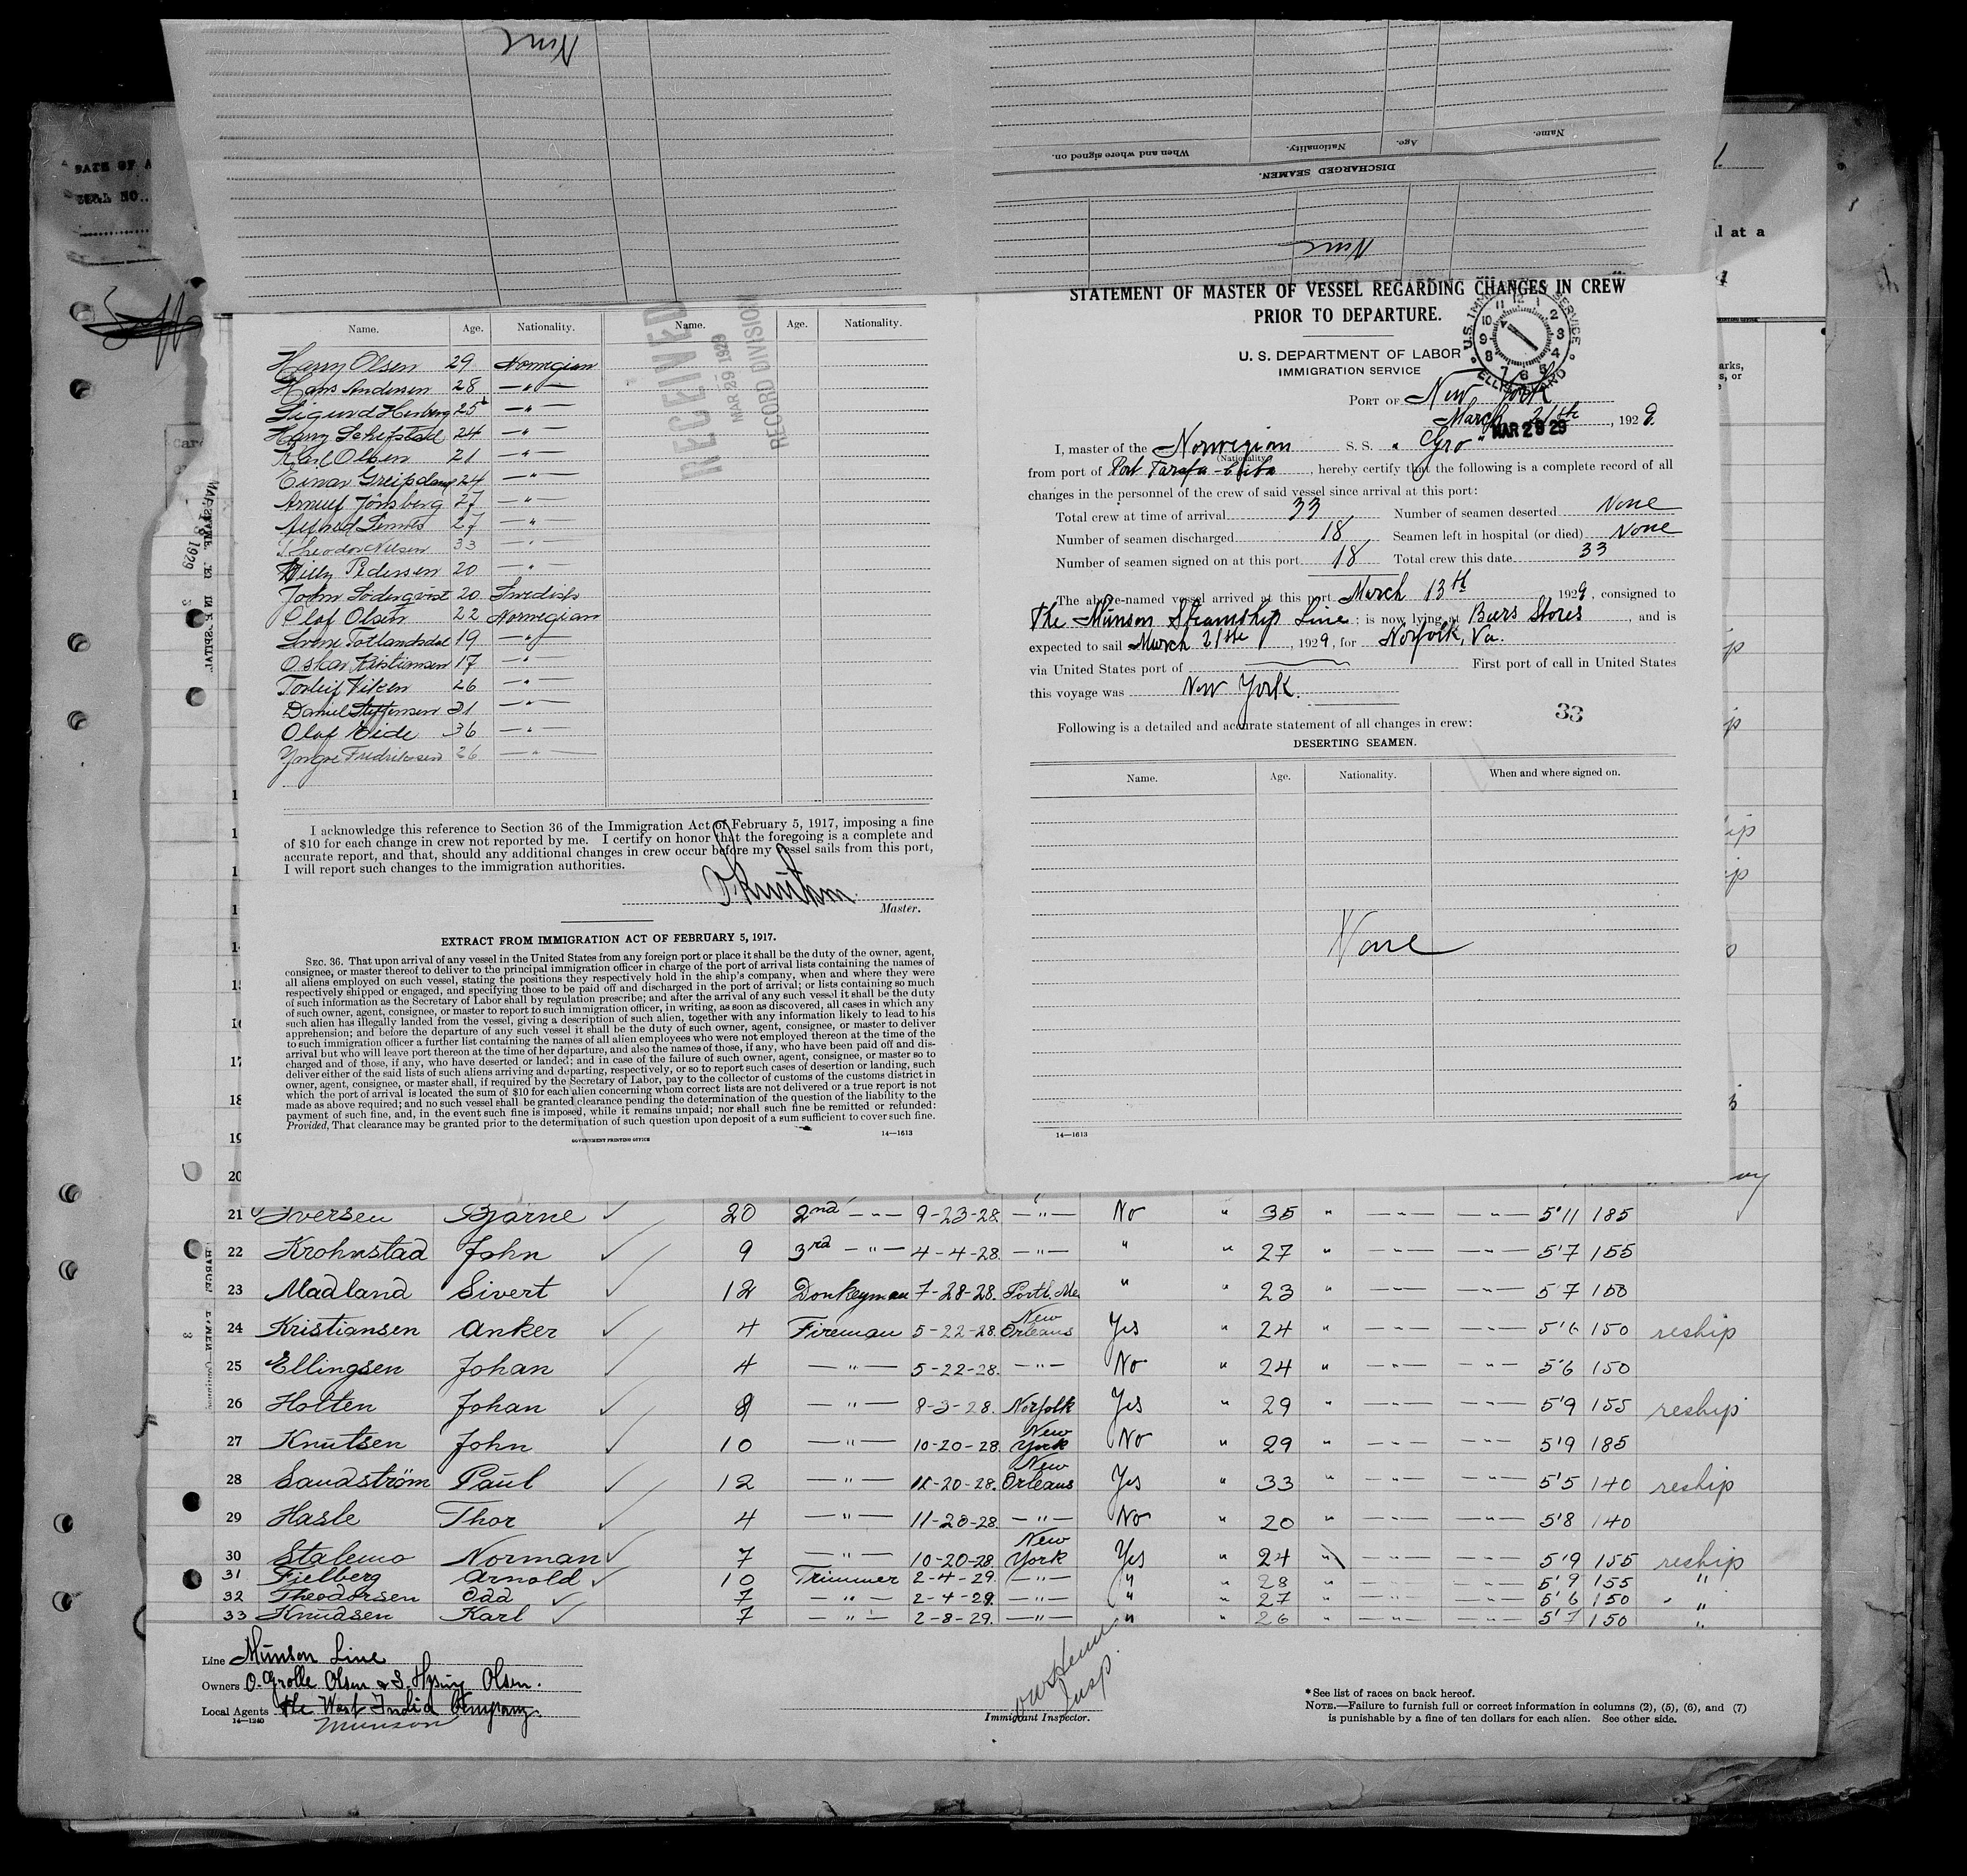 None
When and where signed on.
Nationality.
Age.
Name.
DISCHARGED SEAMEN.
None
DATE OF A
NO..
l at a
Name. Age. Nationality. Name. Age. Nationality.
RECEIVED
MAR 29 1929
RECORD DIVISION
Harry Olsen 29 Norwegian
Hans Andersen 28 — " —
Sigurd Herberg 25 — " —
Harry 24 — " —
Karl Olsen 21 — " —
Einar 24 — " —
27 — " —
Alfred 27 — " —
Theodor Nilsen 33 — " —
Willy Pedersen 20 — " —
John Söderqvist 20 Swedish
Olaf Olsen 22 Norwegian
Totlandsdal 19 — " —
Oskar Kristiansen 17 — " —
Torleif Viken 26 — " —
Daniel Steffensen 31 — " —
Olaf Eide 36 — " —
Yngve Fredriksen 26 — " —
I acknowledge this reference to Section 36 of the Immigration Act of February 5, 1917, imposing a fine
of $10 for each change in crew not reported by me. I certify on honor that the foregoing is a complete and
accurate report, and that, should any additional changes in crew occur before my vessel sails from this port,
I will report such changes to the immigration authorities.
Master.
EXTRACT FROM IMMIGRATION ACT OF FEBRUARY 5, 1917.
SEC. 36. That upon arrival of any vessel in the United States from any foreign port or place it shall be the duty of the owner, agent,
consignee, or master thereof to deliver to the principal immigration officer in charge of the port of arrival lists containing the names of
all aliens employed on such vessel, stating the positions they respectively hold in the ship's company, when and where they were
respectively shipped or engaged, and specifying those to be paid off and discharged in the port of arrival; or lists containing so much
of such information as the Secretary of Labor shall by regulation prescribe; and after the arrival of any such vessel it shall be the duty
of such owner, agent, consignee, or master to report to such immigration officer, in writing, as soon as discovered, all cases in which any
such alien has illegally landed from the vessel, giving a description of such alien, together with any information likely to lead to his
apprehension; and before the departure of any such vessel it shall be the duty of such owner, agent, consignee, or master to deliver
to such immigration officer a further list containing the names of all alien employees who were not employed thereon at the time of the
arrival but who will leave port thereon at the time of her departure, and also the names of those, if any, who have been paid off and dis-
charged and of those, if any, who have deserted or landed; and in case of the failure of such owner, agent, consignee, or master so to
deliver either of the said lists of such aliens arriving and departing, respectively, or so to report such cases of desertion or landing, such
owner, agent, consignee, or master shall, if required by the Secretary of Labor, pay to the collector of customs of the customs district in
which the port of arrival is located the sum of $10 for each alien concerning whom correct lists are not delivered or a true report is not
made as above required; and no such vessel shall be granted clearance pending the determination of the question of the liability to the
payment of such fine, and, in the event such fine is imposed, while it remains unpaid; nor shall such fine be remitted or refunded:
Provided, That clearance may be granted prior to the determination of such question upon deposit of a sum sufficient to cover such fine.
GOVERNMENT PRINTING OFFICE 14—1613
STATEMENT OF MASTER OF VESSEL REGARDING CHANGES IN CREW
PRIOR TO DEPARTURE.
U. S. DEPARTMENT OF LABOR
IMMIGRATION SERVICE
PORT OF New York
March 21th, 1929.
MAR 25 29
I, master of the Norwegian S. S. "Gro"
(Nationality)
from port of Port Tarafa - Cuba, hereby certify that the following is a complete record of all
changes in the personnel of the crew of said vessel since arrival at this port:
Total crew at time of arrival 33 Number of seamen deserted None
Number of seamen discharged 18 Seamen left in hospital (or died) None
Number of seamen signed on at this port 18 Total crew this date 33
The above-named vessel arrived at this port March 13th 1929, consigned to
The Munson Steamship Line; is now lying at Stores, and is
expected to sail March 21th, 1929, for Norfolk, Va.
via United States port of First port of call in United States
this voyage was New York.
33
Following is a detailed and accurate statement of all changes in crew:
DESERTING SEAMEN.
Name. Age. Nationality. When and where signed on.
None
14—1613
17
18
19
20
21 Iversen Bjarne ✓ 20 2nd — " — 9-23-28 — " — No " 35 " — " — — " — 5'11 185
22 Krohnstad John ✓ 9 3rd — " — 4-4-28. — " — " " 27 " — " — — " — 5'7 155
23 Madland Sivert ✓ 12 Donkeyman 7-28-28. Portl. Me. " " 23 " — " — — " — 5'7 150
24 Kristiansen Anker ✓ 4 Fireman 5-22-28. New Orleans Yes " 24 " — " — — " — 5'6 150 reship
25 Ellingsen Johan ✓ 4 — " — 5-22-28. — " — No " 24 " — " — — " — 5'6 150
26 Holten Johan ✓ 8 — " — 8-3-28. Norfolk Yes " 29 " — " — — " — 5'9 155 reship
27 Knutsen John ✓ 10 — " — 10-20-28. New York No " 29 " — " — — " — 5'9 185
28 Sandström Paul ✓ 12 — " — 11-20-28. New Orleans Yes " 33 " — " — — " — 5'5 140 reship
29 Hasle Thor ✓ 4 — " — 11-20-28. — " — No " 20 " — " — — " — 5'8 140
30 Stalemo Norman ✓ 7 — " — 10-20-28. New York Yes " 24 " — " — — " — 5'9 155 reship
31 Fjelberg Arnold ✓ 10 Trimmer 2-4-29. — " — " " 28 " — " — — " — 5'9 155 "
32 Theodorsen Odd ✓ 7 — " — 2-4-29. — " — " " 27 " — " — — " — 5'6 150 "
33 Knudsen Karl ✓ 7 — " — 2-8-29. — " — " " 26 " — " — — " — 5'7 150 "
Line Munson Line
Owners O. Grolle Olsen & S. Hysing Olsen.
Local Agents The West India Company.
14—1240 Munson
Insp.
Immigrant Inspector.
*See list of races on back hereof.
NOTE.—Failure to furnish full or correct information in columns (2), (5), (6), and (7)
is punishable by a fine of ten dollars for each alien. See other side.